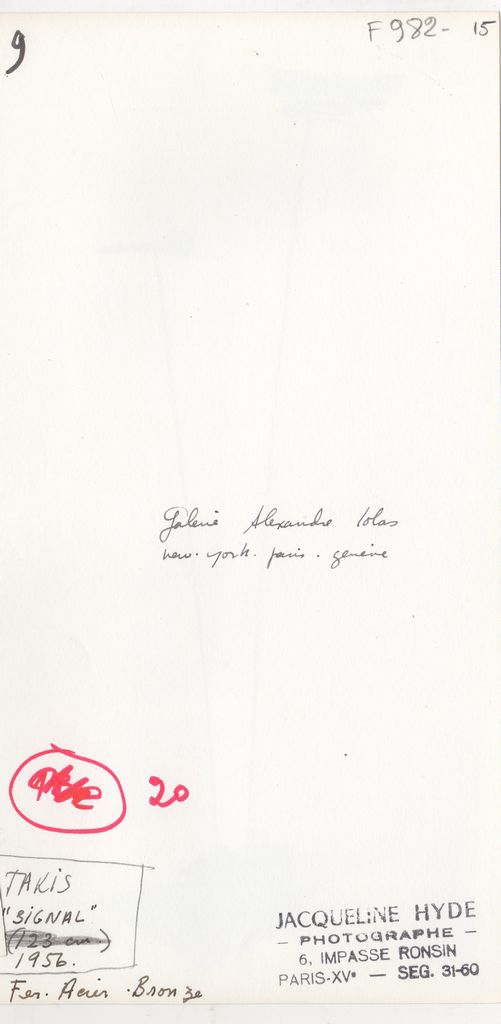 9
F 982 - 15
Galerie Alexandre Iolas
new-york. paris. genève
20
TAKIS
"SIGNAL"
(123 cm)
1956.
Fer. Acier. Bronze
JACQUELINE HYDE
- PHOTOGRAPHE -
6, IMPASSE RONSIN
PARIS-XVe — SEG. 31-60